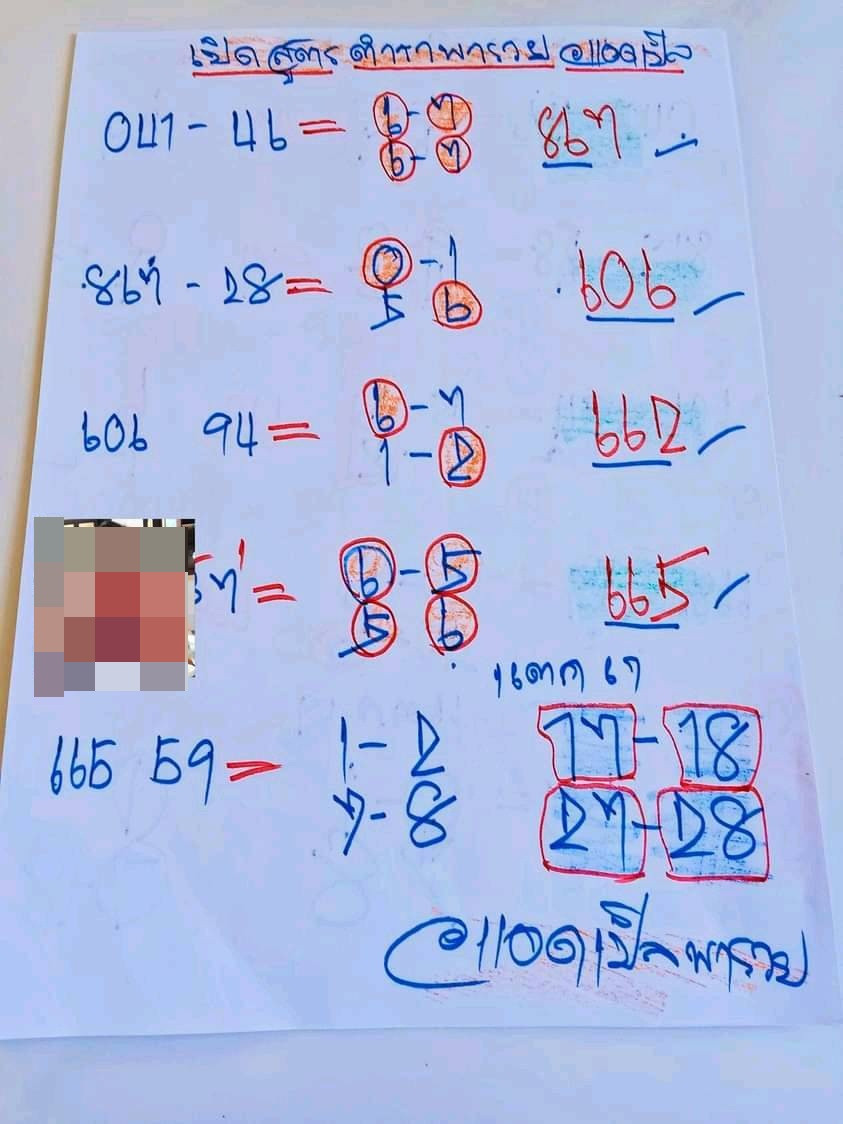 เปิดสูตร ตำราพารวย อแอดเปิ้ล
041 - 46 = 6 - 7 867
6 - 7
867 - 28 = 0 - 1 606
5 6
606 94 = 6 - 7 662
1 - 2
57 = 6 - 5 665
5 6
แตก 67
665 59 = 1 - 2 17 - 18
7 - 8 27 - 28
แอดเปิ้ลพารวย